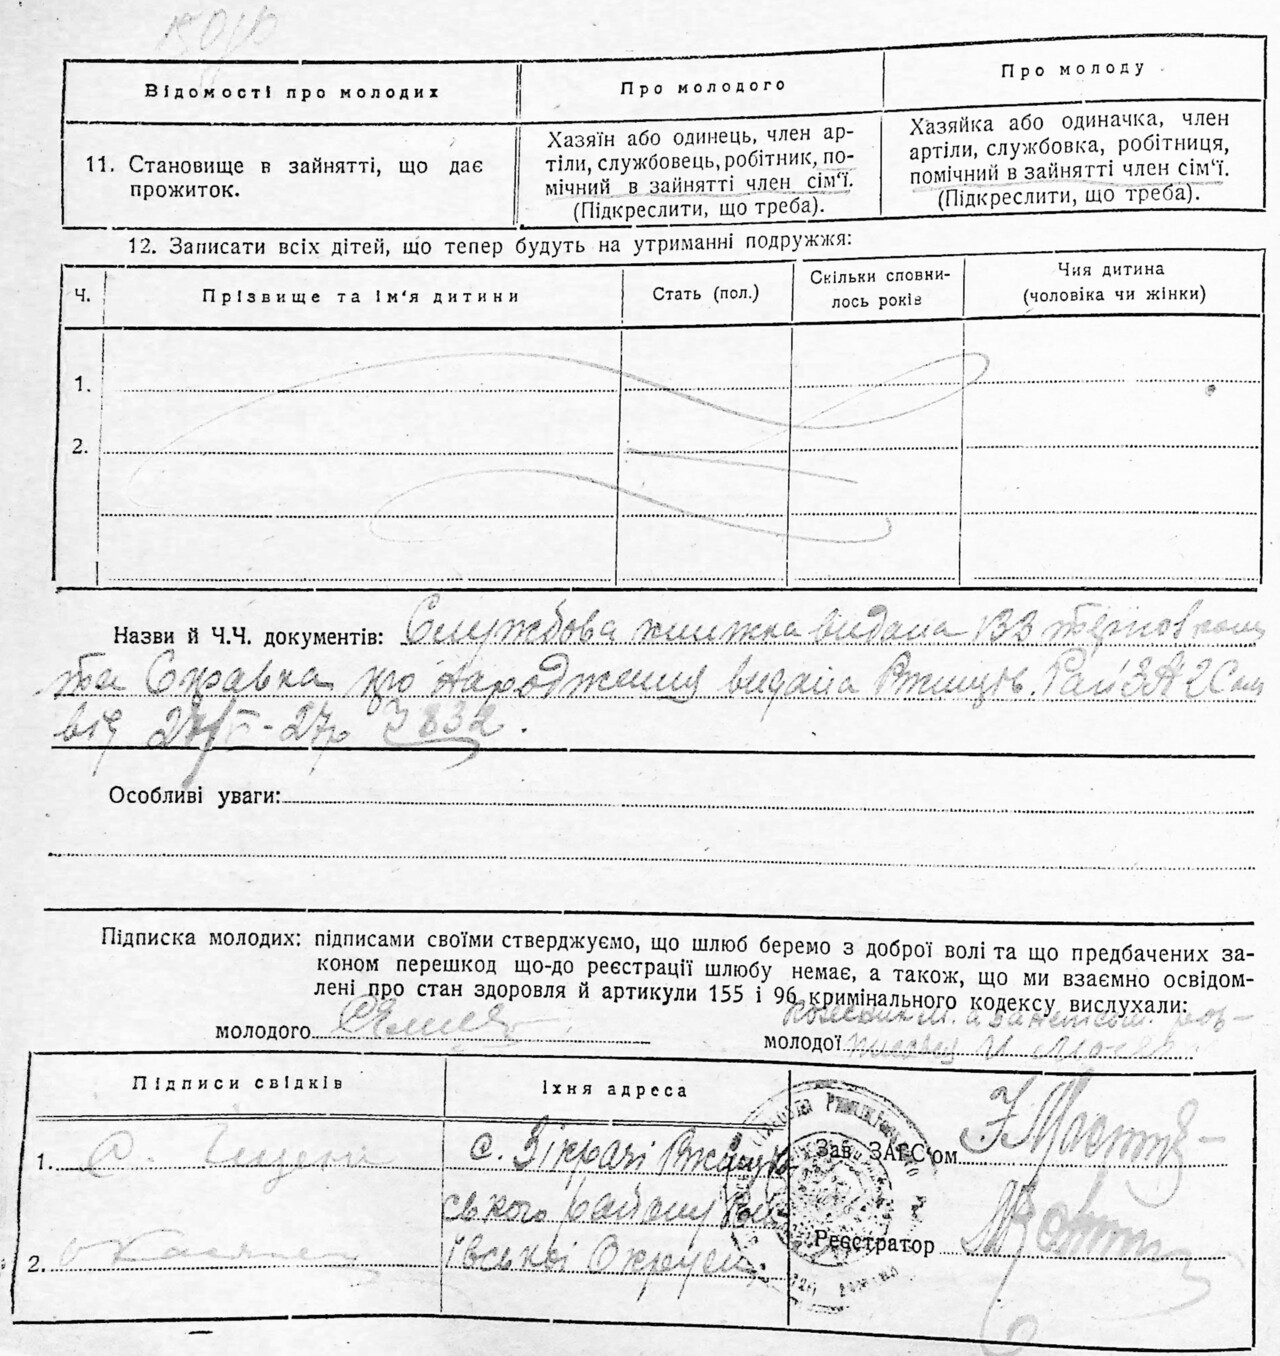 Відомості про молодих
Про молодого
Про молоду
11. Становище в зайнятті, що дає
прожиток.
Хазяїн або одинець, член ар-
тіли, службовець, робітник, по-
мічний в зайнятті член сім'ї.
(Підкреслити, що треба).
Хазяйка або одиначка, член
артіли, службовка, робітниця,
помічний в зайнятті член сім'ї.
(Підкреслити, що треба).
12. Записати всіх дітей, що тепер будуть на утриманні подружжя:
Ч.
Прізвище та ім'я дитини
Стать (пол.)
Скільки сповни-
лось років
Чия дитина
(чоловіка чи жінки)
1.
2.
Назви й Ч.Ч. документів: Службова книжка видана 133
та Справка про народження видана Ржищів.
від 27р 3832.
Особливі уваги:
Підписка молодих: підписами своїми стверджуємо, що шлюб беремо з доброї волі та що предбачених за-
коном перешкод що-до реєстрації шлюбу немає, а також, що ми взаємно освідом-
лені про стан здоровля й артикули 155 і 96 кримінального кодексу вислухали:
молодого
молодої
Підписи свідків
Їхня адреса
1.
с. Зікрачі Ржищів
ського району Киї
ївської Округи
Зав. ЗАГС'ом
Реєстратор
2.